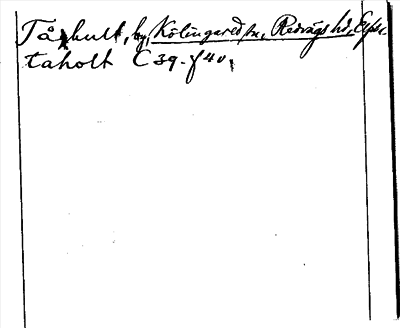 Tåhult, by, Kölingared sn, Redvägs hd, Elfsb.
taholt C 39. f 4 v.